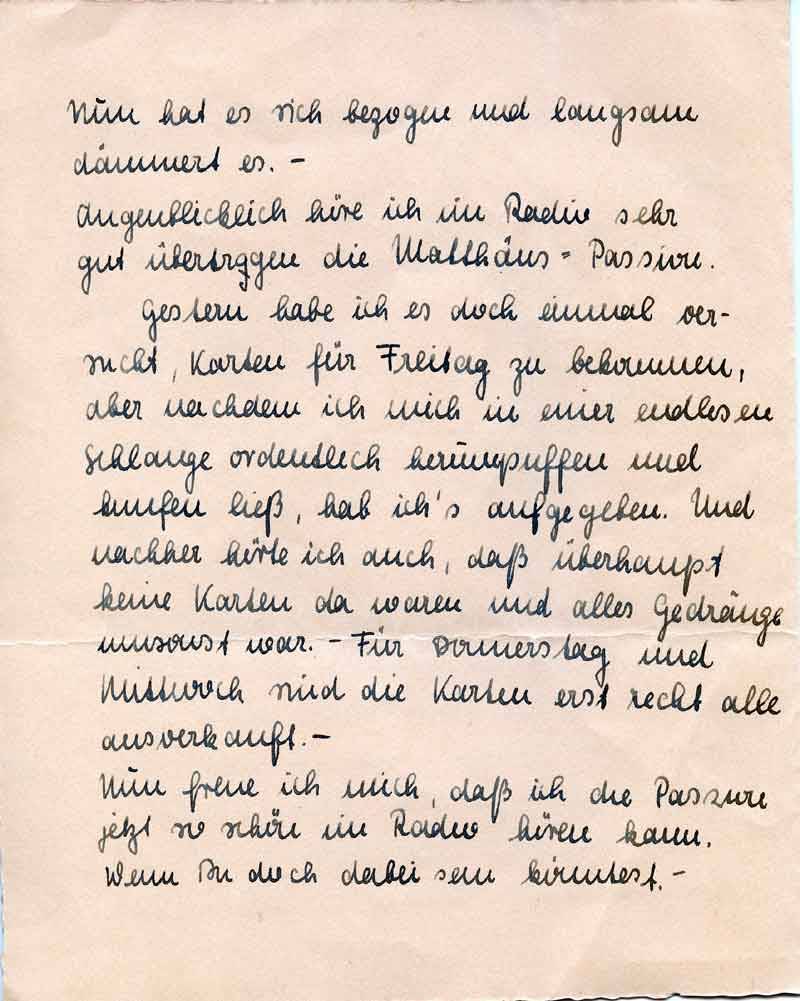 Nun hat es sich bezogen und langsam
dämmert es. –
Augenblicklich höre ich im Radio sehr
gut übertragen die Matthäus-Passion.
Gestern habe ich es doch einmal ver-
sucht, Karten für Freitag zu bekommen,
aber nachdem ich mich in einer endlosen
Schlange ordentlich herumpuffen und
knufen ließ, hab ich's aufgegeben. Und
nachher hörte ich auch, daß überhaupt
keine Karten da waren und alles Gedränge
umsonst war. – Für Donnerstag und
Mittwoch sind die Karten erst recht alle
ausverkauft. –
Nun freue ich mich, daß ich die Passion
jetzt so schön im Radio hören kann.
Wenn Du doch dabei sein könntest. –